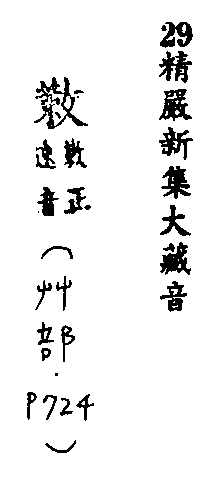 29精嚴新集大藏音
正
速音
（艸部.P724）